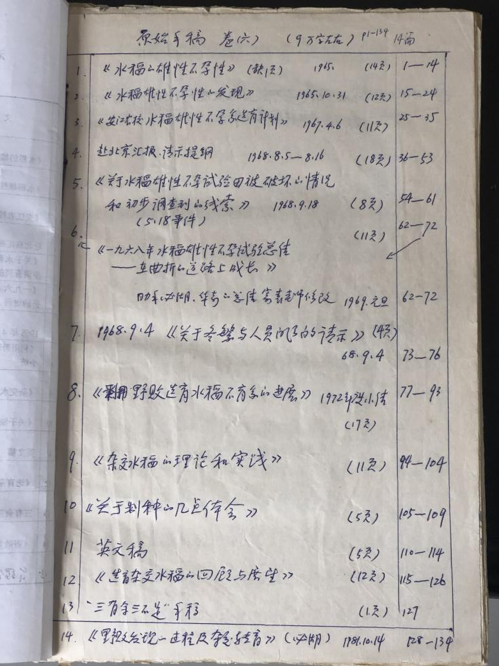 原始手稿 卷(六) (9万字左右) P1-134 14篇
1. 《水稻的雄性不孕性》 (缺1页) 1965. (14页) 1—14
2. 《水稻雄性不孕性的发现》 1965.10.31 (12页) 15—24
3. 水稻雄性不孕系选育计划》 1967.4.6 (11页) 25—35
4. 赴北京汇报、请示提纲 1968.8.5—8.16 (18页) 36—53
5. 《关于水稻雄性不孕试验田被破坏的情况
和初步调查到的线索》 1968.9.18 (8页) 54—61
(5.18事件)
6. (11页) 62—72
《一九六八年水稻雄性不孕试验总结
——在曲折的道路上成长》
修改 1969.元旦 62—72
7. 1968.9.4 《关于冬繁与人员问题的请示》 (4页)
68.9.4 73—76
8. 《利用野败选育水稻不育系的进展》 1972年 77—93
(17页)
9. 《杂交水稻的理论和实践》 (11页) 94—104
10 《关于制种的几点体会》 (5页) 105—109
11 英文稿 (5页) 110—114
12 《选育杂交水稻的回顾与展望》 (12页) 115—126
13 "三有余三不足"手稿 (1页) 127
14. 《野败发现 过程及 》 1981.10.14 128—134